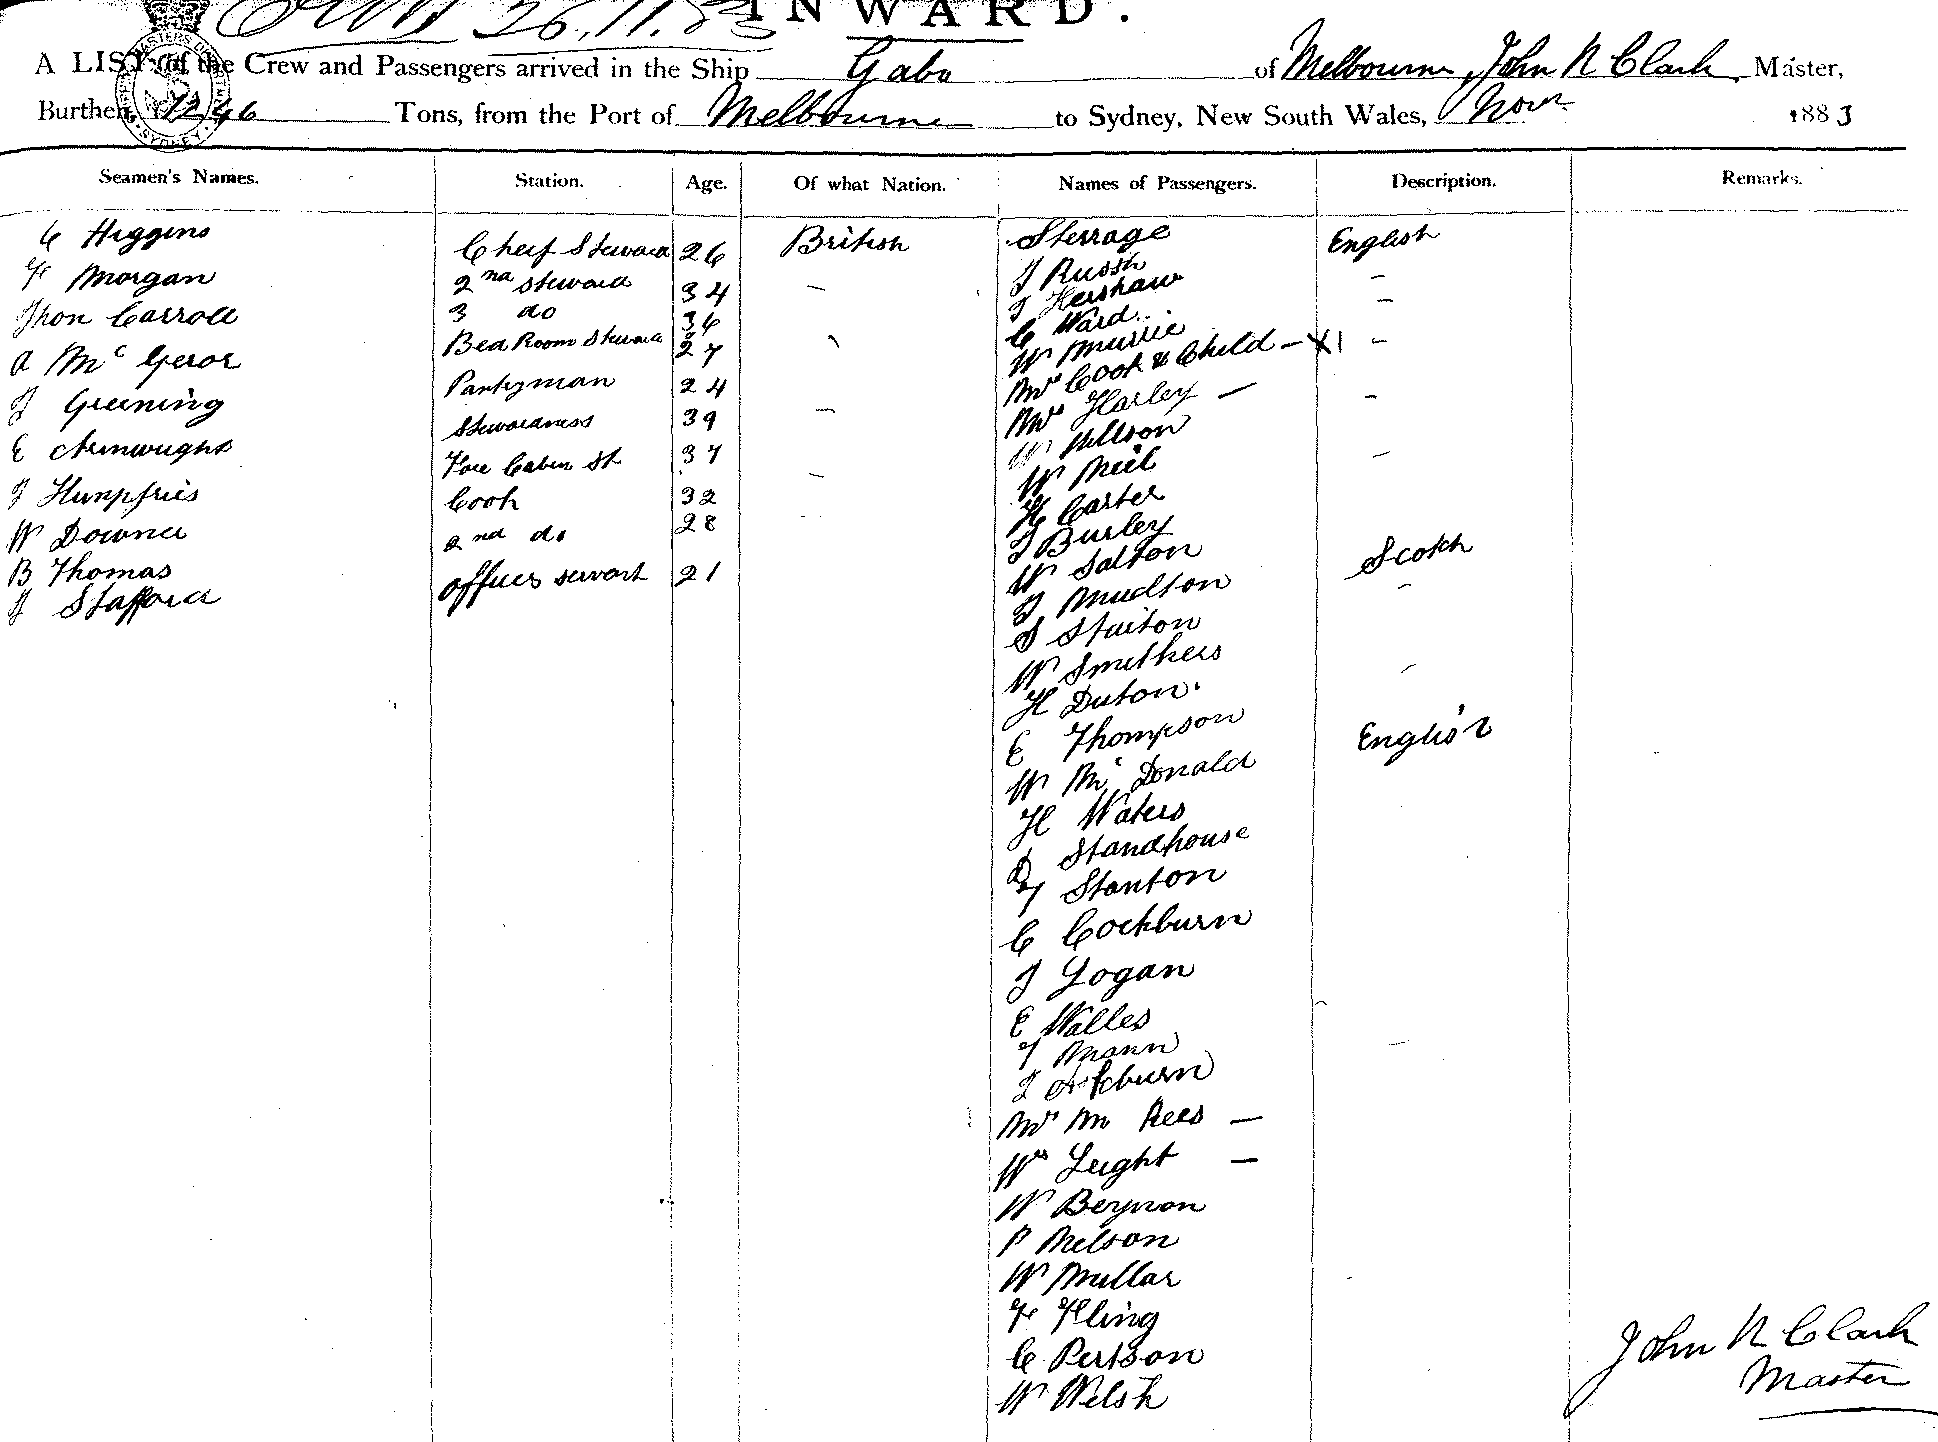 INWARD.
26.11.83
A LIST of the Crew and Passengers arrived in the Ship Gabo of Melbourne, John R Clark, Master,
Burthen, 1246 Tons, from the Port of Melbourne to Sydney, New South Wales, Novr 1883
Seamen's Names. Station. Age. Of what Nation. Names of Passengers. Description. Remarks.
C Higgins Cheif Steward 26 British Sterrage English
F Morgan 2nd Steward 34 – J Russh –
Jhon Carroll 3 do 36 J Kershaw –
A McGeror Bed Room Steward 27 C Ward
J Greening Pantryman 24 W
E Stewardness 39 – Mrs Cook & Child – X1 –
J Humpfries Fore Cabin St 37 Mrs Harley – –
W Downer Cook 32 – W Nillson
B Thomas 2nd do 28 W Neil –
J Stafford officers servant 21 H Carter
J Burley
W Salton Scotch
J Mudlton –
S Stuiton
W Smithers –
H Duton.
E Thompson English
W Mc Donald
H Waters
Standhouse
T Stanton
C Cockburn
J Logan
E Walles
T Mann –
J
Mrs M Rees –
Leight –
W Beynon
P Nelson
W Millar
F Kling
C Pertson
W Welsh
John R Clark
Master